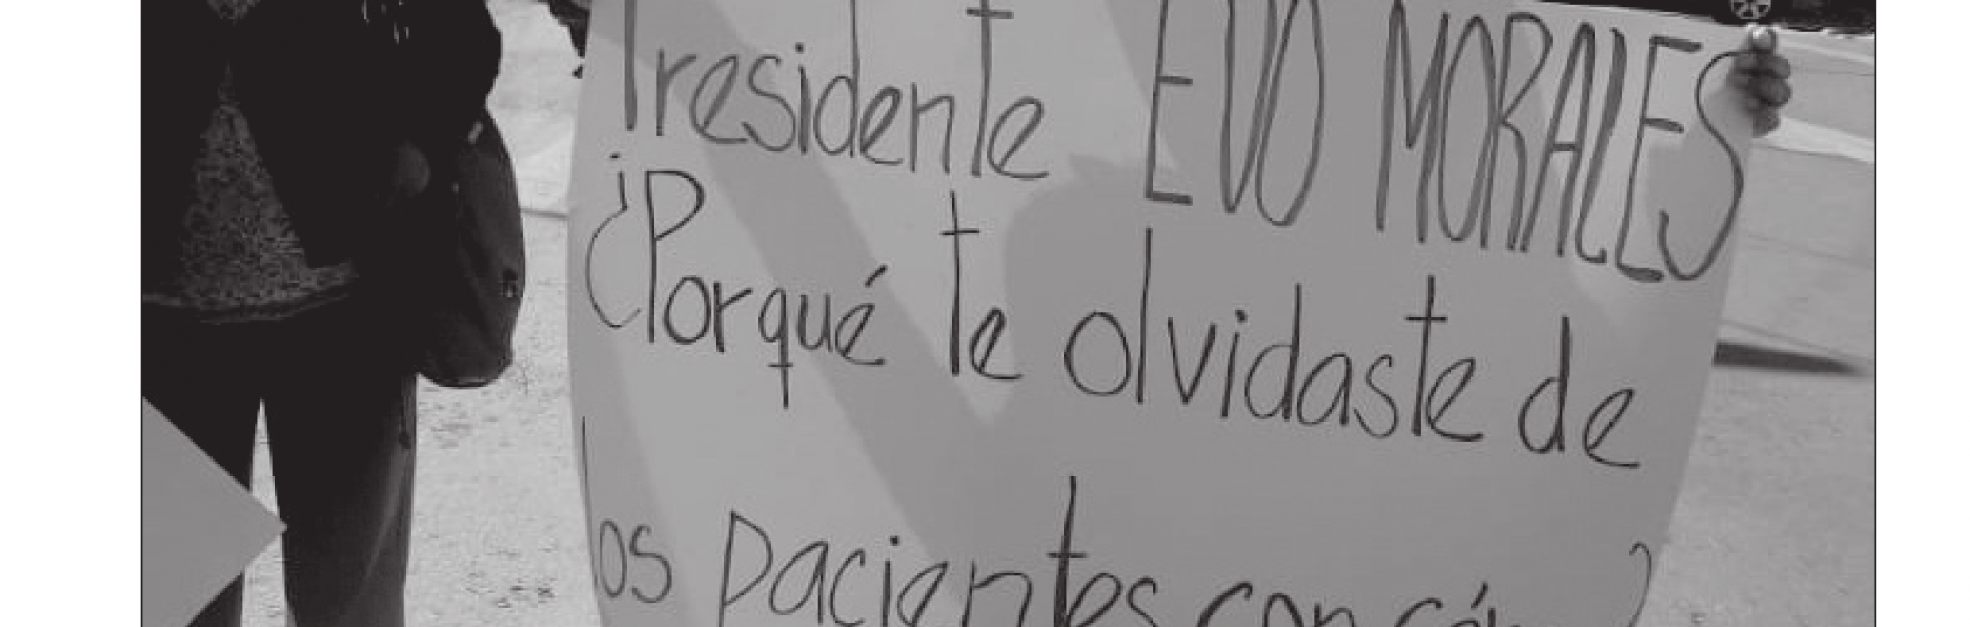 Presidente EVO MORALES
¿Porqué te olvidaste de
los pacientes con